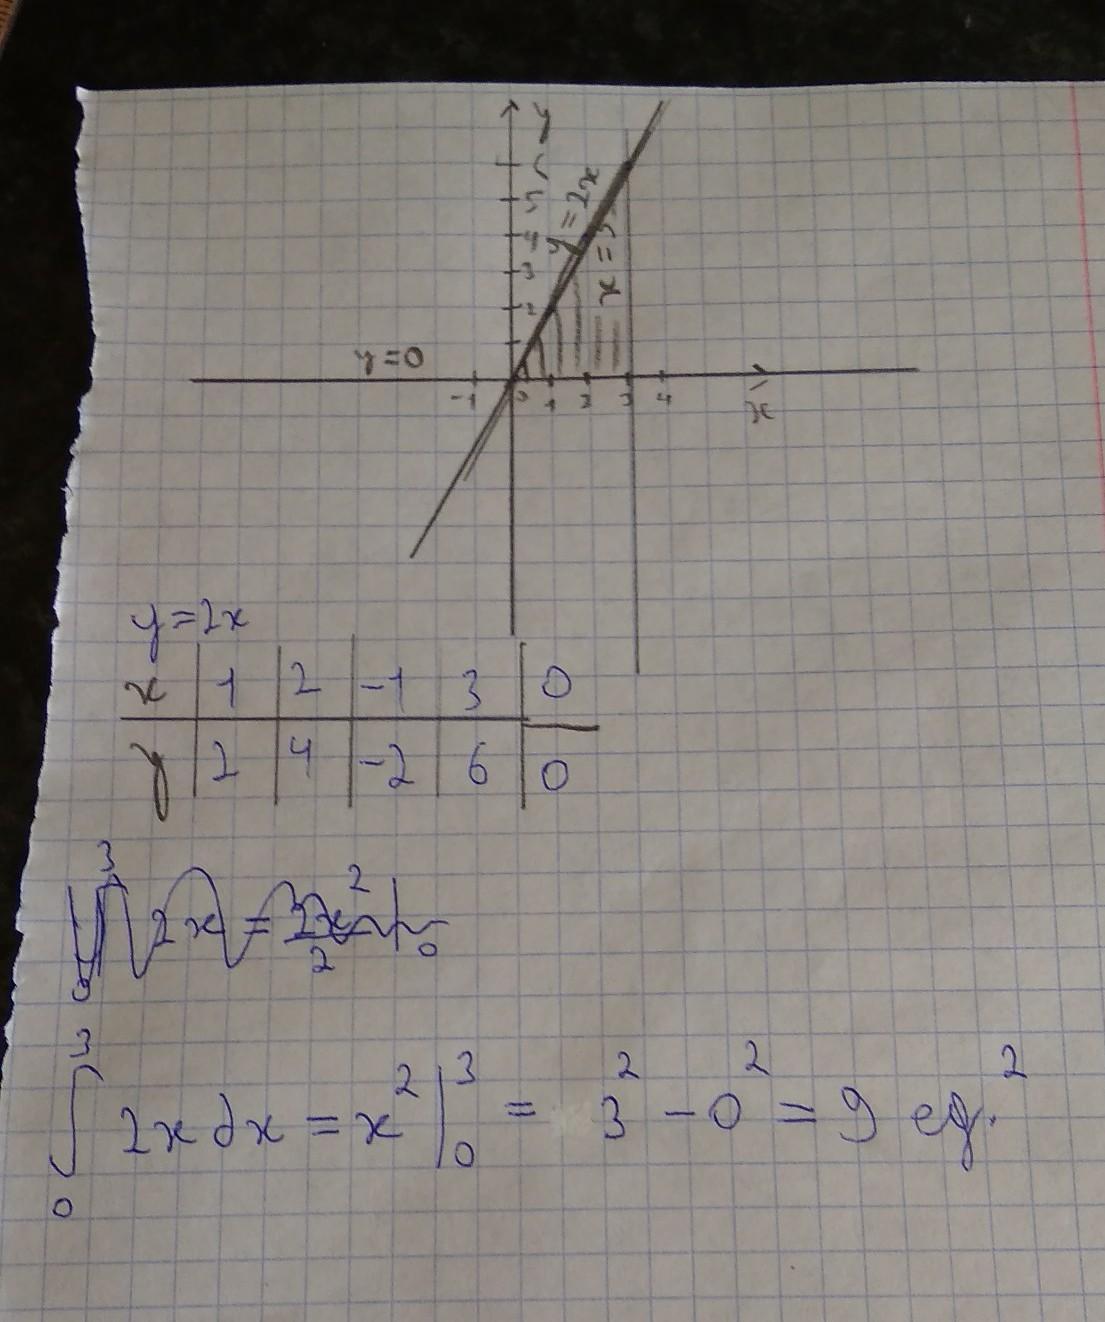 y
5
4
3
2
y = 2x
x = 3
y = 0
-1 0 1 2 3 4
x
y = 2x
x | 1 | 2 | -1 | 3 | 0
y | 2 | 4 | -2 | 6 | 0
∫₀³ 2x dx = x² |₀³ = 3² - 0² = 9 ед.²